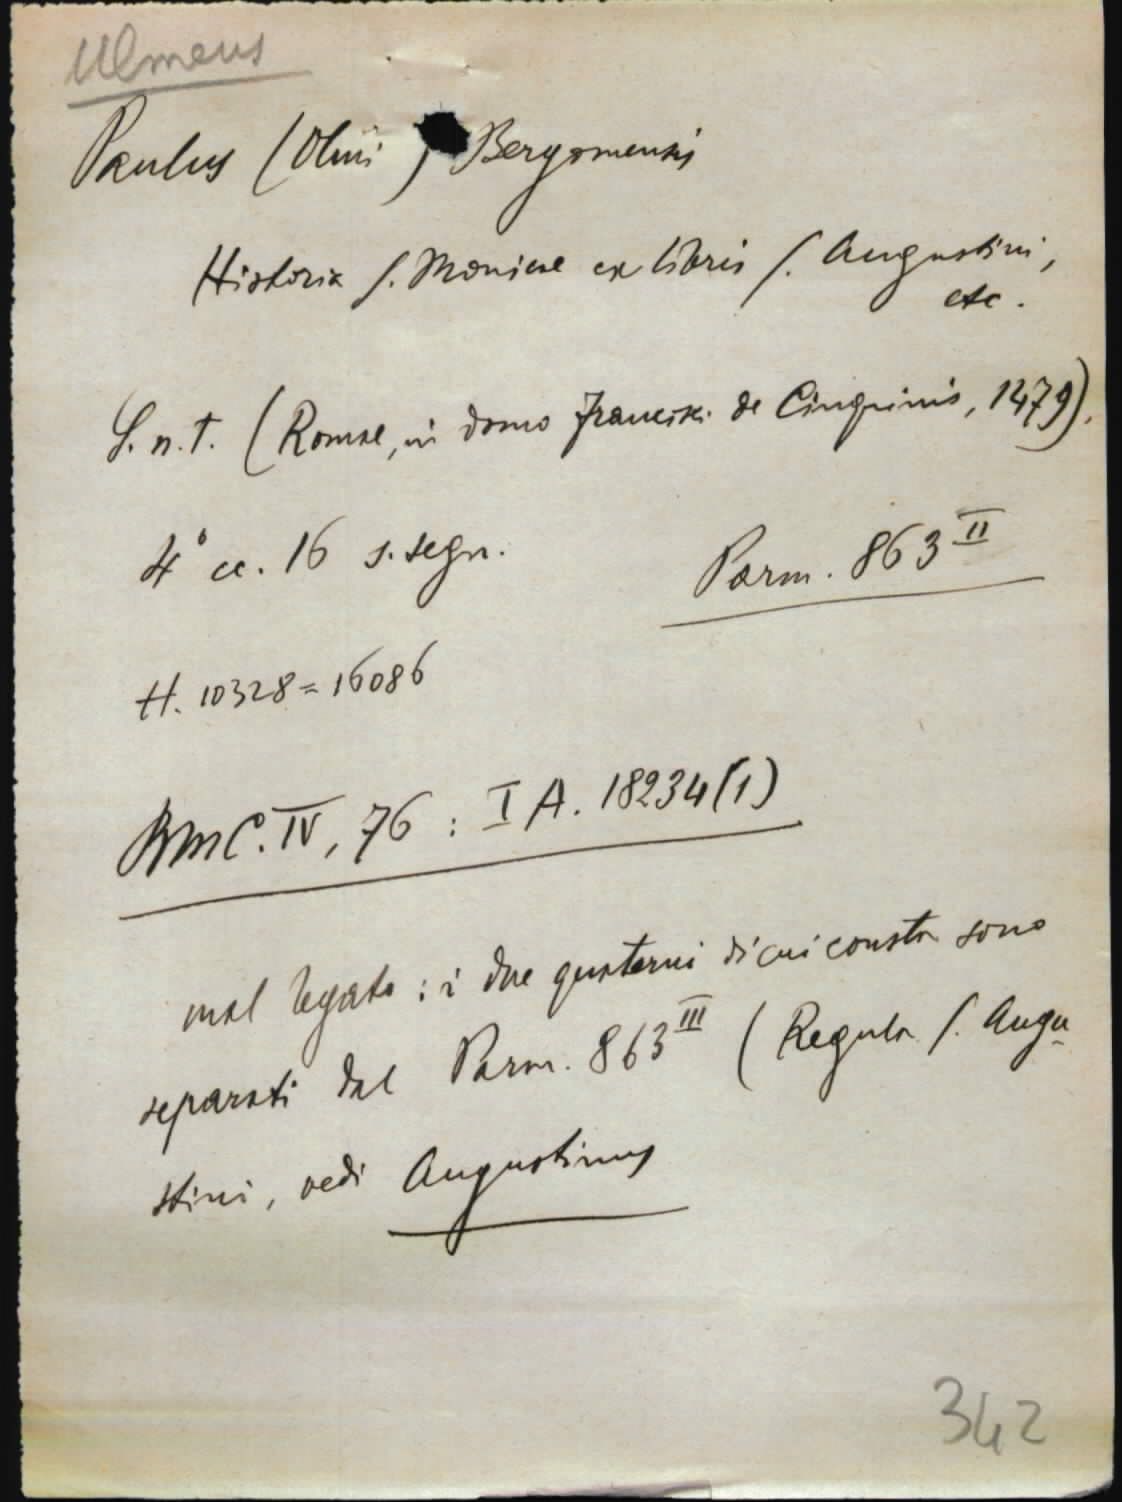 Ulmeus
Paulus (Olmi) Bergomensis
Historia S. Monicae ex libris S. Augustini,
etc.
S. n. t. (Romae, in domo Francisci de Cinquinis, 1479).
4° cc. 16 s. segn.
Parm. 863 II
H. 10328 = 16086
BMC. IV, 76 : IA. 18234 (1)
mal legato : i due quaterni di cui consta sono
separati dal Parm. 863 III (Regula S. Augu-
stini, vedi Augustinus
342